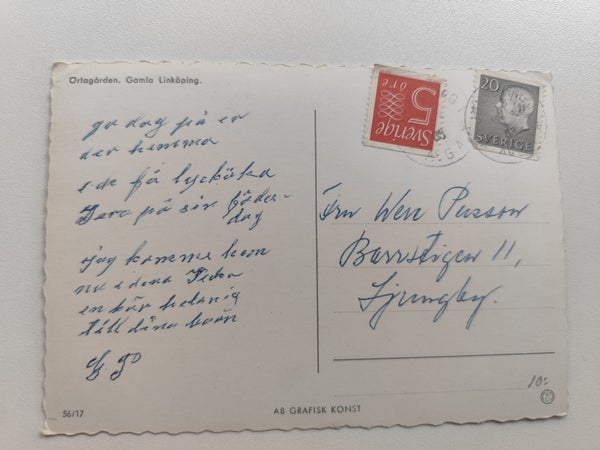 Örtagården. Gamla Linköping.
go dag på er
der hemma
och få lyckönska
Sara på sin föder-
dag
jag komme hem
nu i dena Veka
en kär helsnig
till dina barn
5 öre
Sverige
20
SVERIGE
Fru Wen Persson
Barrstigen 11,
Ljungby.
10:-
56/17
AB GRAFISK KONST